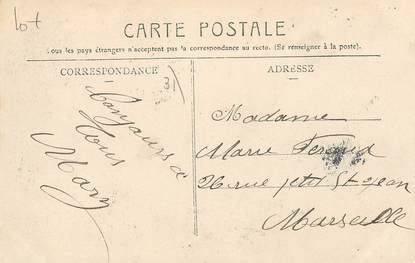 lot
CARTE POSTALE
Tous les pays étrangers n'acceptent pas la correspondance au recto. (Se renseigner à la poste).
CORRESPONDANCE
ADRESSE
à
tous
Mary
Madame
Marie
26 rue petit St Jean
Marseille